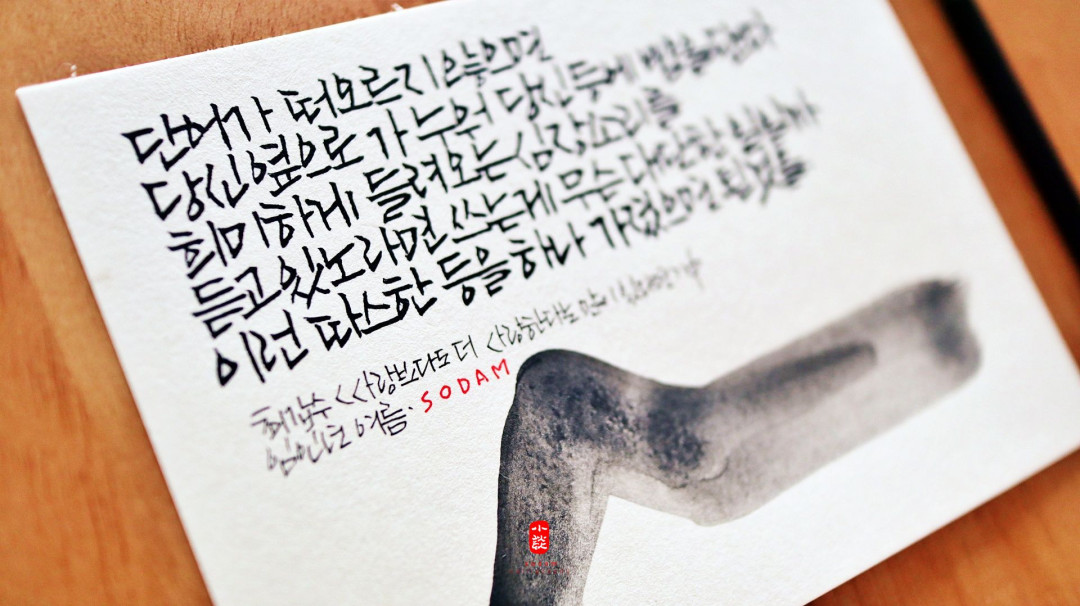 단어가 떠오르지 않으면
당신 옆으로 가 누워 당신 등에
희미하게 들려오는 심장소리를
듣고 있노라면 쓰는 게 무슨 대단한 일인가
이런 따스한 등을 하나 가졌으면 된 것을
최갑수 <사랑보다도 더 사랑한다는 말이 있다면>
임인년 여름. SODAM
小談